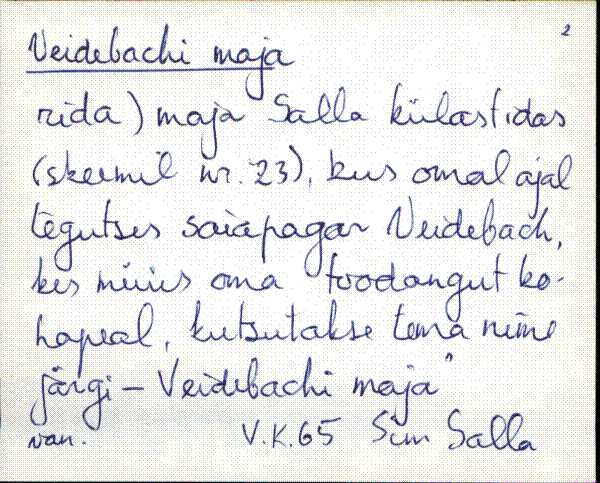 2
Veidebachi maja
rida) maja Salla külastidas
(skeemil nr. 23), kus omal ajal
tegutses saiapagar Veidebach,
kes müüs oma toodangut ko-
hapeal, kutsutakse tema nime
järgi – Veidebachi maja"
van. V.K.65 Sim Salla